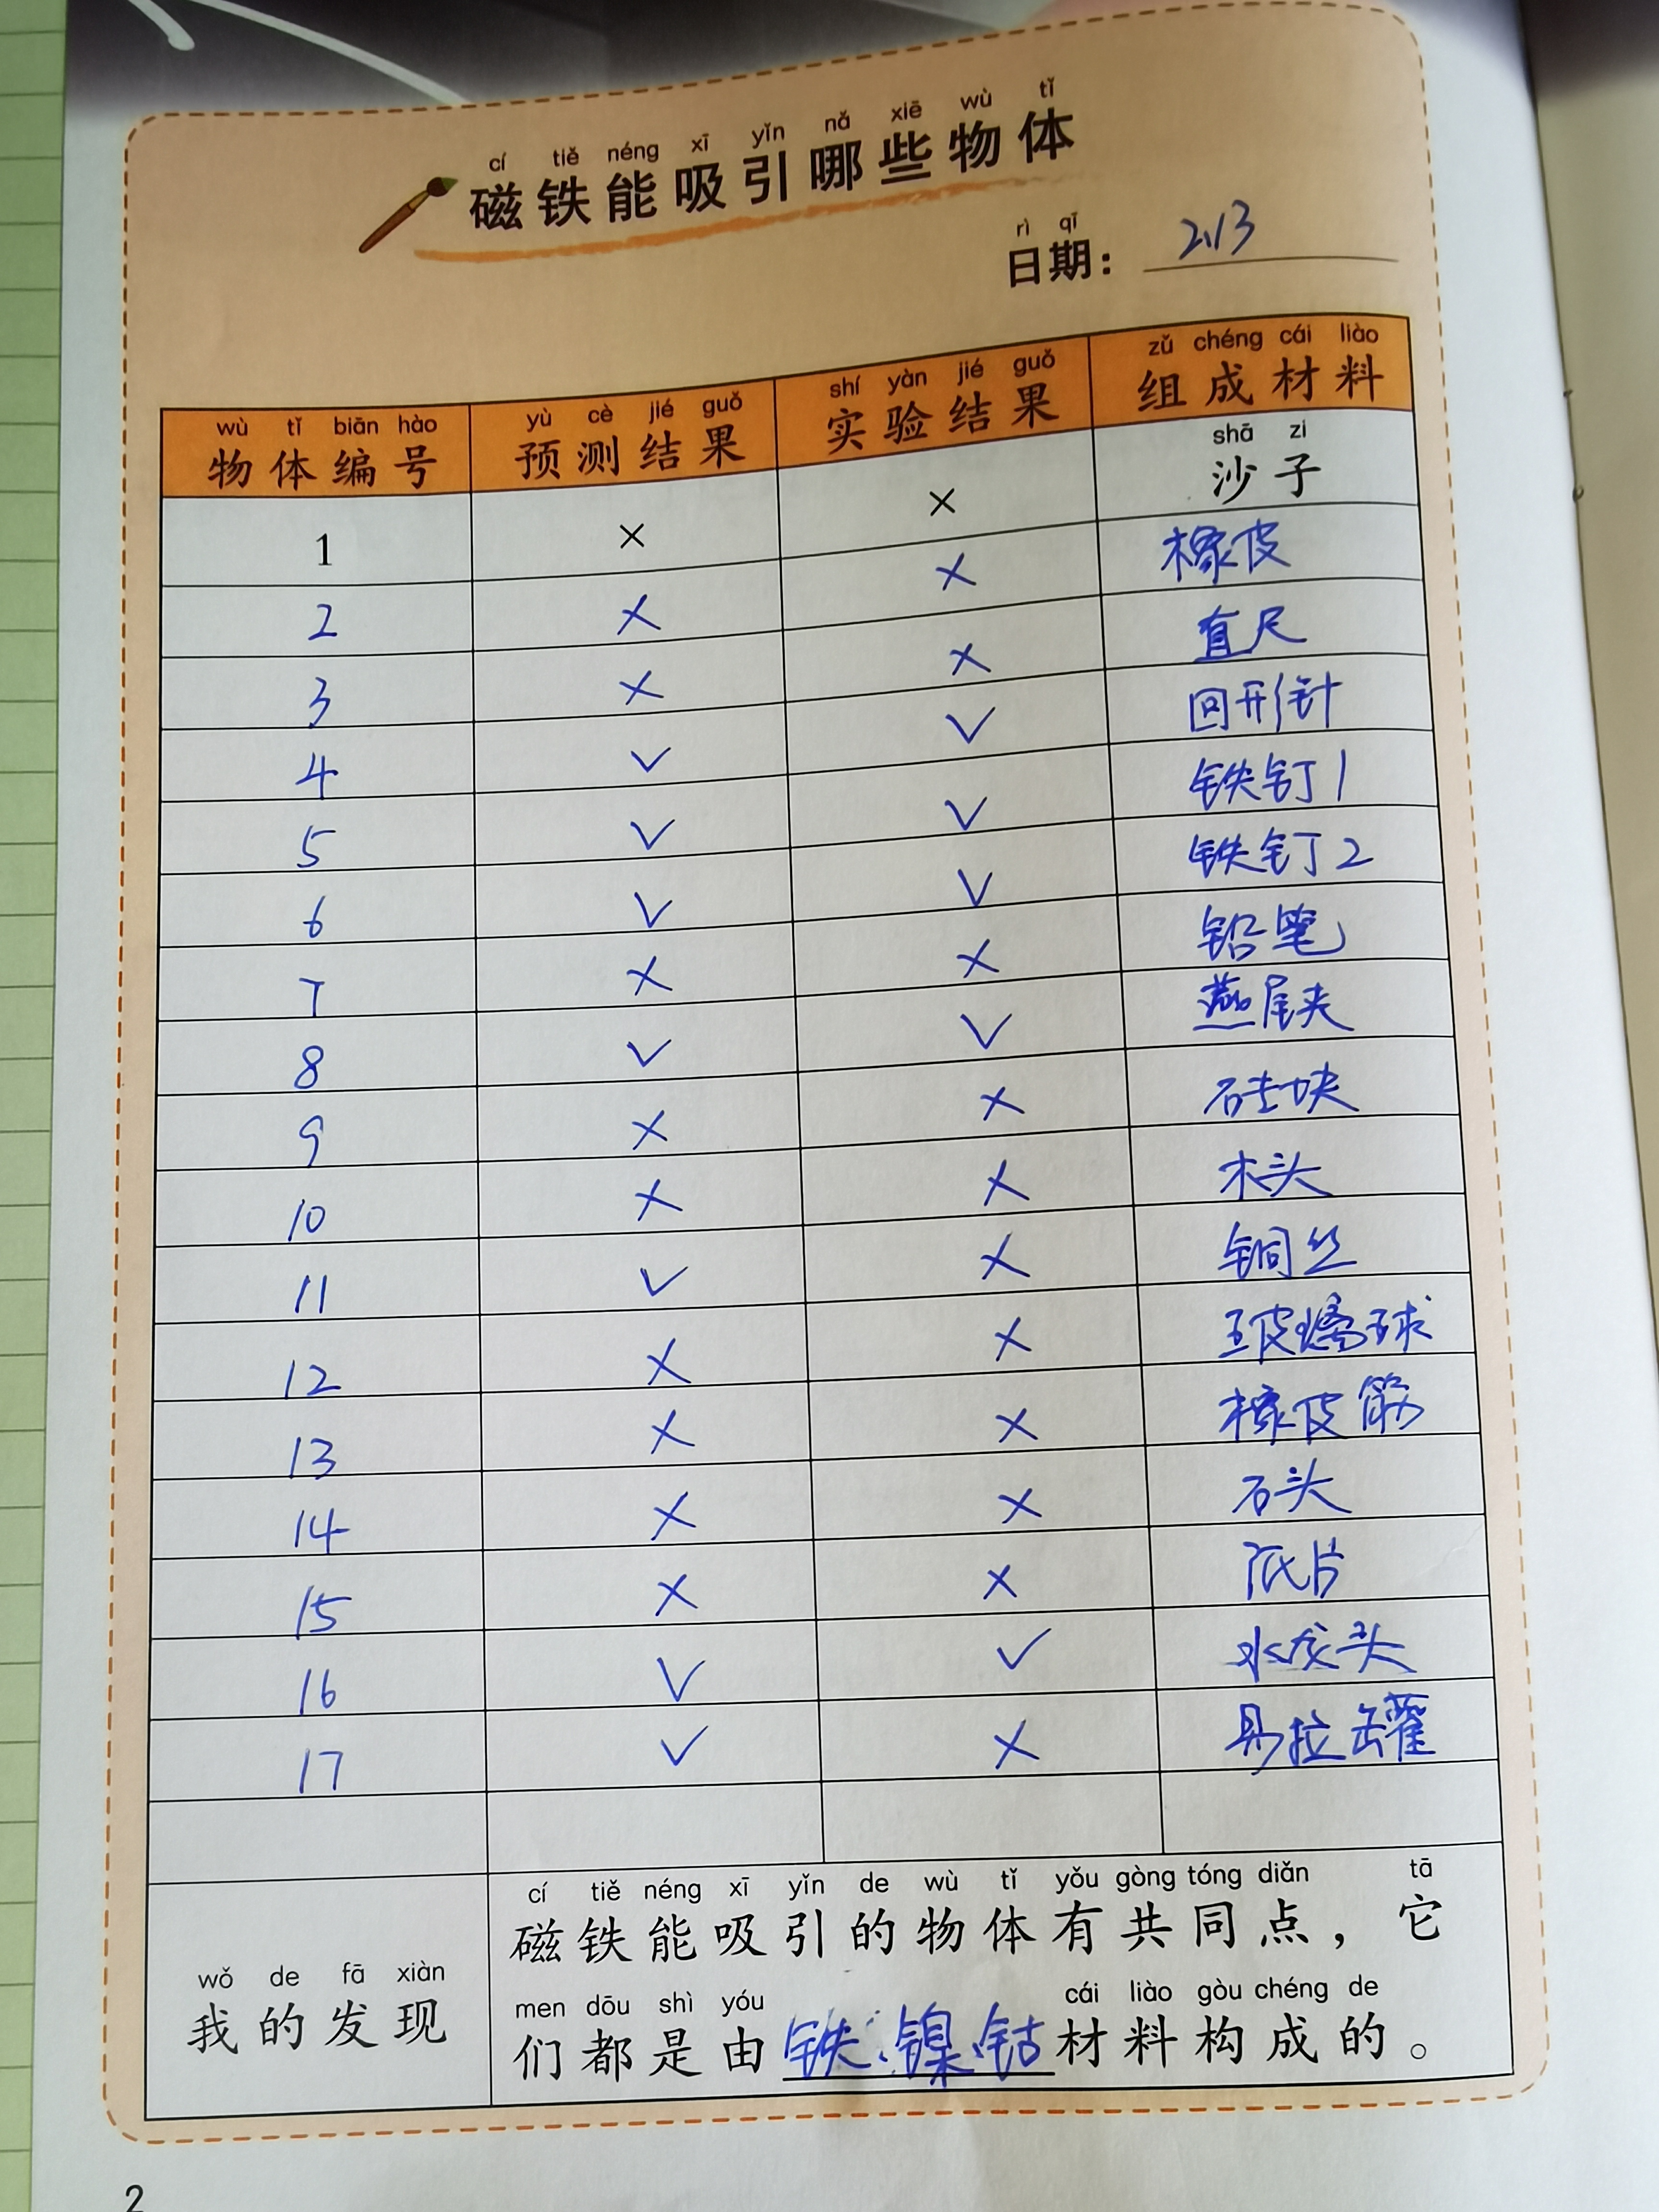 cí tiě néng xī yǐn nǎ xiē wù tǐ
磁铁能吸引哪些物体
rì qī
日期： 2.13
wù tǐ biān hào yù cè jié guǒ shí yàn jié guǒ zǔ chéng cái liào
物体编号 预测结果 实验结果 组成材料
shā zi
1 × × 沙子
2 × × 橡皮
3 × × 直尺
4 ✓ ✓ 回形针
5 ✓ ✓ 铁钉1
6 ✓ ✓ 铁钉2
7 × × 铅笔
8 ✓ ✓ 燕尾夹
9 × × 硅块
10 × × 木头
11 ✓ × 铜丝
12 × × 球
13 × × 橡皮筋
14 × × 石头
15 × × 片
16 ✓ ✓ 水龙头
17 ✓ × 易拉罐
cí tiě néng xī yǐn de wù tǐ yǒu gòng tóng diǎn tā
磁铁能吸引的物体有共同点，它
wǒ de fā xiàn
我的发现
men dōu shì yóu cái liào gòu chéng de
们都是由铁、镍、钴材料构成的。
2